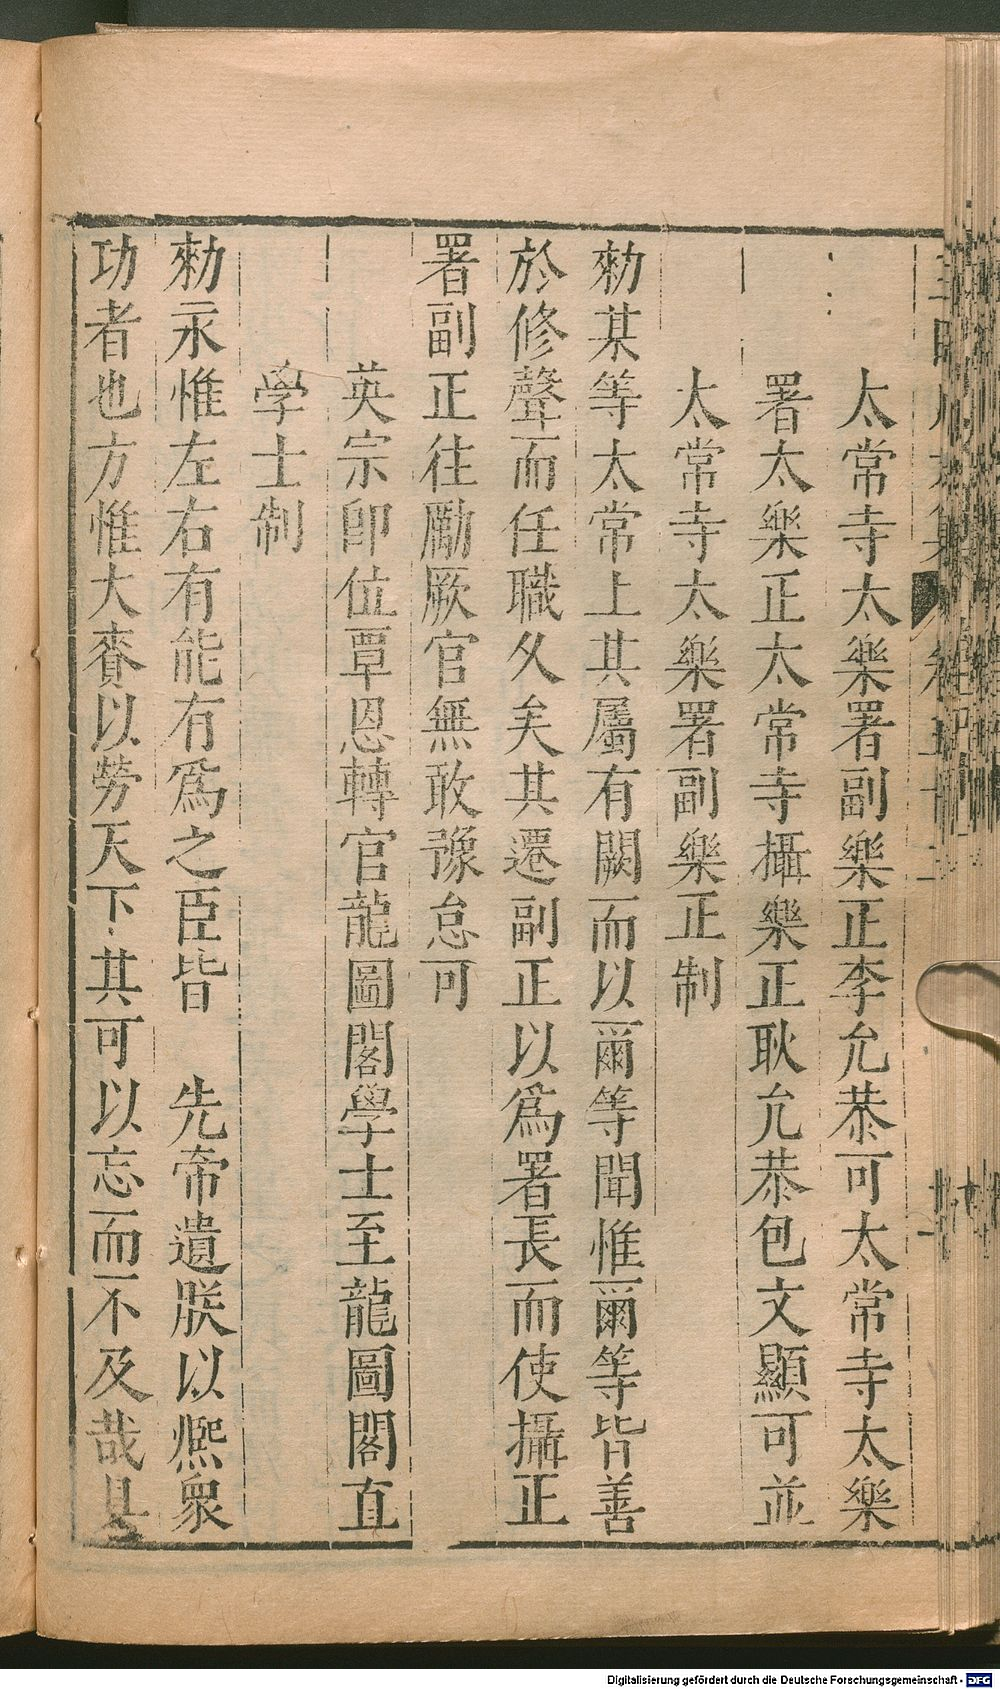 太常寺太樂署副樂正李允恭可太常寺太樂
署太樂正太常寺攝樂正耿允恭包文顯可並
太常寺太樂署副樂正制
勑某等太常上其屬有闕而以爾等聞惟爾等皆善
於修聲而任職久矣其遷副正以為署長而使攝正
署副正往勵厥官無敢豫怠可
英宗卽位覃恩轉官龍圖閣學士至龍圖閣直
学士制
勑永惟左右有能有為之臣皆　先帝遺朕以熈衆
功者也方惟大賚以勞天下其可以忘而不及哉具
Digitalisierung gefördert durch die Deutsche Forschungsgemeinschaft - DFG